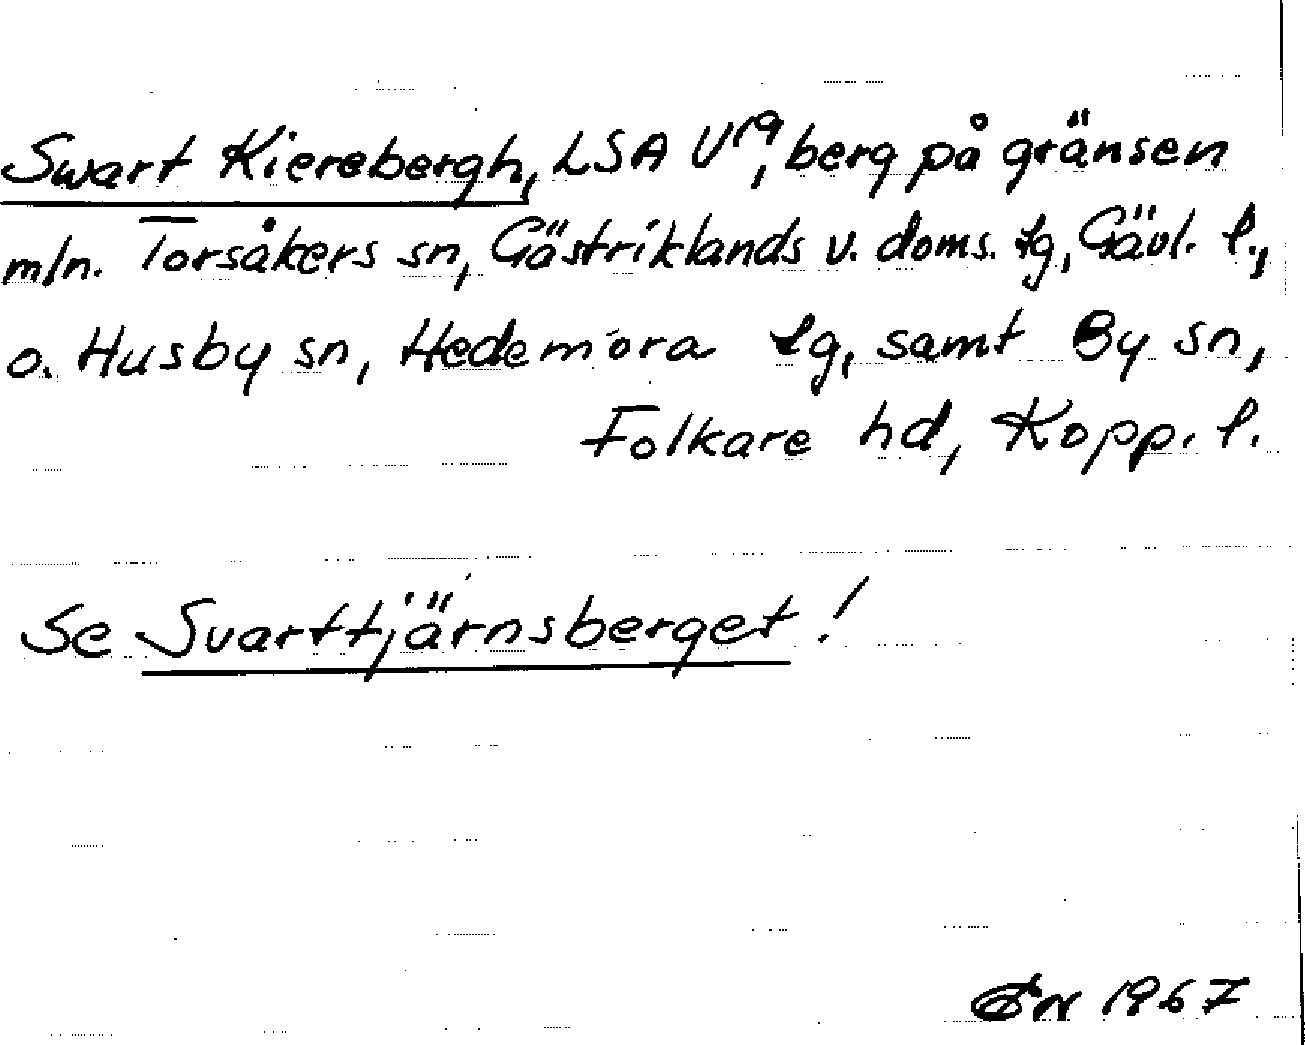 Swart Kierebergh, LSA U19, berg på gränsen
mln. Torsåkers sn, Gästriklands v. doms. tg, Gävl. l.,
o. Husby sn, Hedemora tg, samt By sn,
Folkare hd, Kopp. l.
Se Svarttjärnsberget!
1967